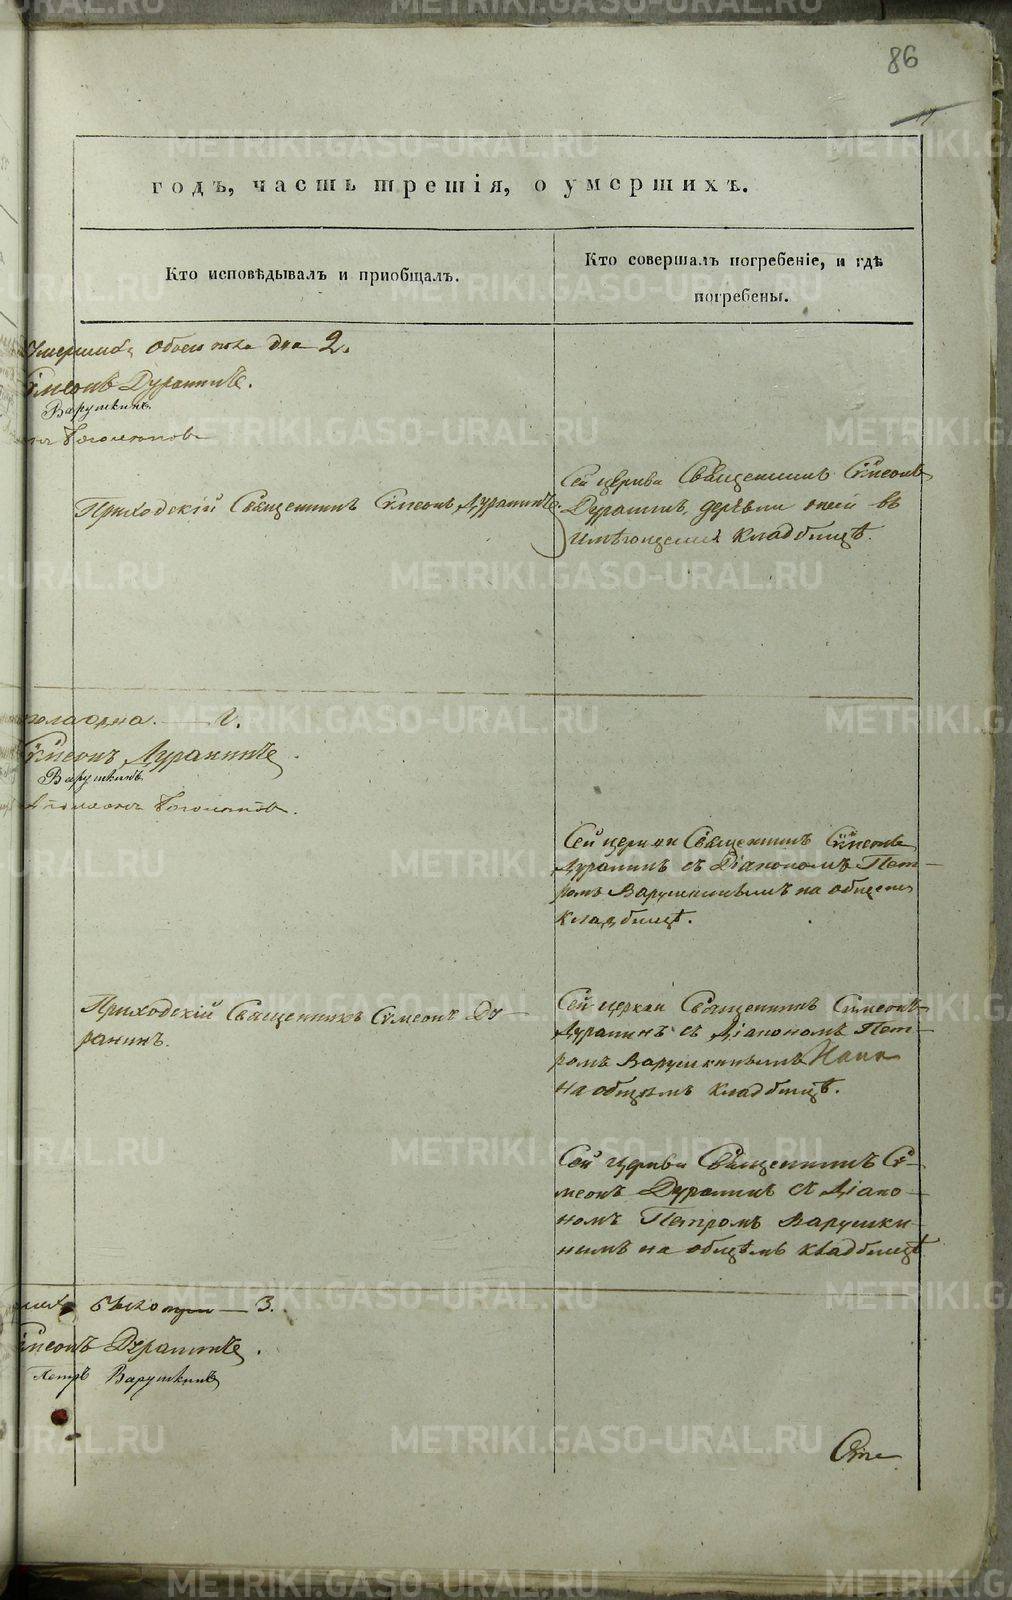 86
годъ, часть третія, о умершихъ.
Кто исповѣдывалъ и пріобщалъ.
Кто совершалъ погребеніе, и гдѣ
погребены.
обоего пола два 2.
Симеонъ Дуранинъ.
Варушкинъ
Приходскій Священникъ Симеонъ Дуранинъ.
Сей церкви Священникъ Симеонъ
Дуранинъ, деревни оной во
имѣющемся кладбищѣ.
одна. — 1.
Симеонъ Дуранинъ.
Варушкинъ
Сей церкви Священникъ Симеонъ
Дуранинъ съ Діакономъ Пет-
ромъ Варушкинымъ на общемъ
кладбищѣ.
Приходскій Священникъ Симеонъ Ду-
ранинъ.
Сей церкви Священникъ Симеонъ
Дуранинъ съ Діакономъ Пет-
ромъ Варушкинымъ
на общемъ кладбищѣ.
Сей церкви Священникъ Си-
меонъ Дуранинъ съ Діако-
номъ Петромъ Варушки-
нымъ на общемъ кладбищѣ
три — 3.
Симеонъ Дуранинъ.
Петръ Варушкинъ
METRIKI.GASO-URAL.RU